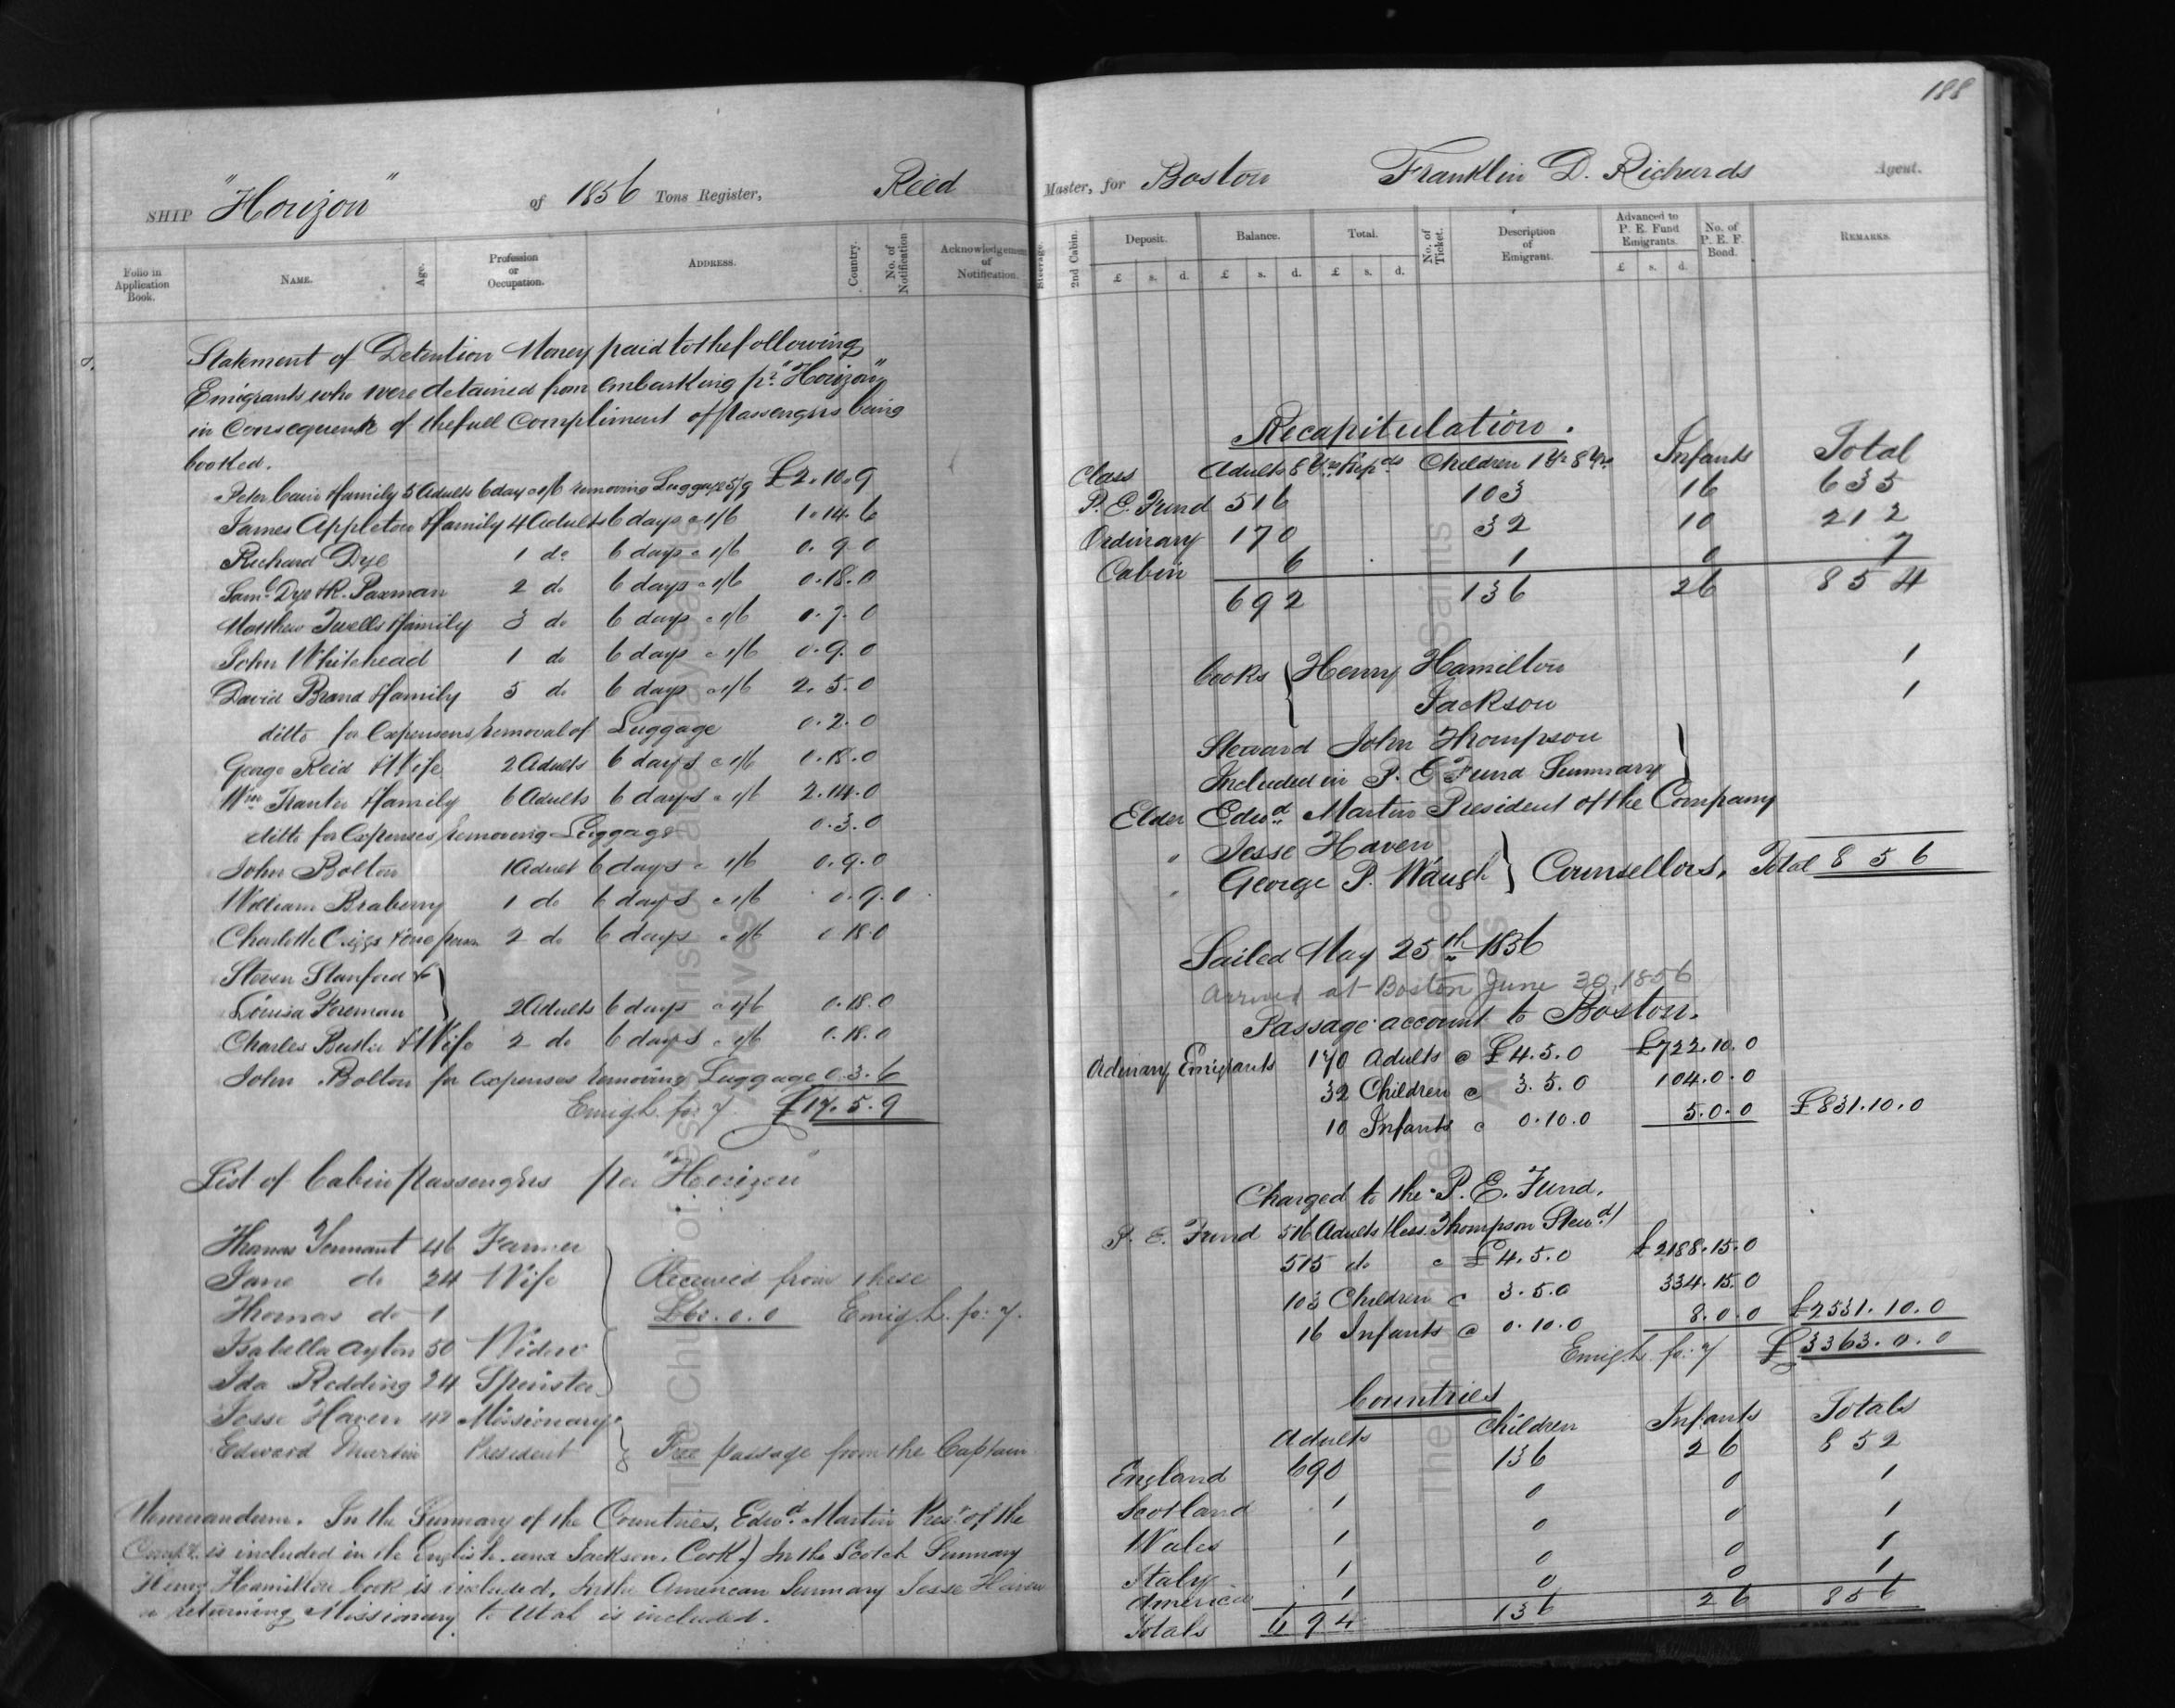 188
SHIP "Horizon" of 1856 Tons Register, Reed
Folio in Application Book. NAME. Age. Profession or Occupation. ADDRESS. Country. No. of Notification Acknowledgement of Notification.
Statement of Detention Money paid to the following
Emigrants who were detained from embarking pr. "Horizon"
in Consequence of the full Compliment of Passengers being
booked.
Peter Cain & family 5 Adults 6 days @ 1/6 removing Luggage 5/9 £2.10.9
James Appleton & family 4 Adults 6 days @ 1/6 1.14.6
Richard Dye 1 do 6 days @ 1/6 0.9.0
Saml. Dye & R. Paxman 2 do 6 days @ 1/6 0.18.0
Matthew Twells & family 3 do 6 days @ 1/6 0.7.0
John Whitehead 1 do 6 days @ 1/6 0.9.0
David Brand & family 5 do 6 days @ 1/6 2.5.0
ditto for Expenses removal of Luggage 0.2.0
George Reid & Wife 2 Adults 6 days @ 1/6 0.18.0
Wm Tranter & family 6 Adults 6 days @ 1/6 2.14.0
ditto for Expenses removing Luggage 0.3.0
John Bolton 1 Adult 6 days @ 1/6 0.9.0
William Braberry 1 do 6 days @ 1/6 0.9.0
Charlotte Criggs & one 2 do 6 days @ 1/6 0.18.0
Steven Stanford &
Louisa Foreman 2 Adults 6 days @ 1/6 0.18.0
Charles Butler & Wife 2 do 6 days @ 1/6 0.18.0
John Bolton for Expenses removing Luggage 0.3.6
Emigh. fo: 7 £17.5.9
List of Cabin Passengers per "Horizon"
Thomas Tennant 46 Farmer
Jane do 24 Wife Received from these
Thomas do 1 £60.0.0 Emig.h. fo: 7.
Isabella Ayton 50 Widow
Ida Redding 24 Spinster
Jesse Haven 42 Missionary
Edward Martin President Free passage from the Captain
Memorandum. In the Summary of the Countries, Edwd. Martin Prest. of the
Compy. is included in the English. and Jackson. Cook.) In the Scotch Summary
Henry Hamilton Cook is included. In the American Summary Jesse Haven
a returning Missionary to Utah is included.
Master, for Boston Franklin D. Richards Agent.
Steerage. 2nd Cabin. Deposit. Balance. Total. No. of Ticket. Description of Emigrant. Advanced to P. E. Fund Emigrants. No. of P. E. F. Bond. REMARKS.
£ s. d. £ s. d. £ s. d. £ s. d.
Recapitulation.
Class Adults 8 Yrs & upds Children 1 Yr 8 Yrs Infants Total
P. E. Fund 516 103 16 635
Ordinary 170 32 10 212
Cabin 6 1 0 7
692 136 26 854
Cooks Henry Hamilton 1
Jackson 1
Steward John Thompson
Included in P. E Fund Summary
Elder Edwd. Martin President of the Company
" Jesse Haven
" George P. Waugh Counsellors, Total 856
Sailed May 25th 1856
Arrived at Boston June 30, 1856
Passage account to Boston.
Ordinary Emigrants 170 Adults @ £4.5.0 £722.10.0
32 Children @ 3.5.0 104.0.0
10 Infants @ 0.10.0 5.0.0 £831.10.0
Charged to the P. E. Fund.
P. E. Fund 516 Adults (less Thompson Stewd.)
515 do @ £4.5.0 £2188.15.0
103 Children @ 3.5.0 334.15.0
16 Infants @ 0.10.0 8.0.0 £2531.10.0
Emigh. fo: 7 £3363.0.0
Countries
Adults Children Infants Totals
England 690 136 26 852
Scotland 1 0 0 1
Wales 1 0 0 1
Italy 1 0 0 1
America 1 0 0 1
Totals 694 136 26 856